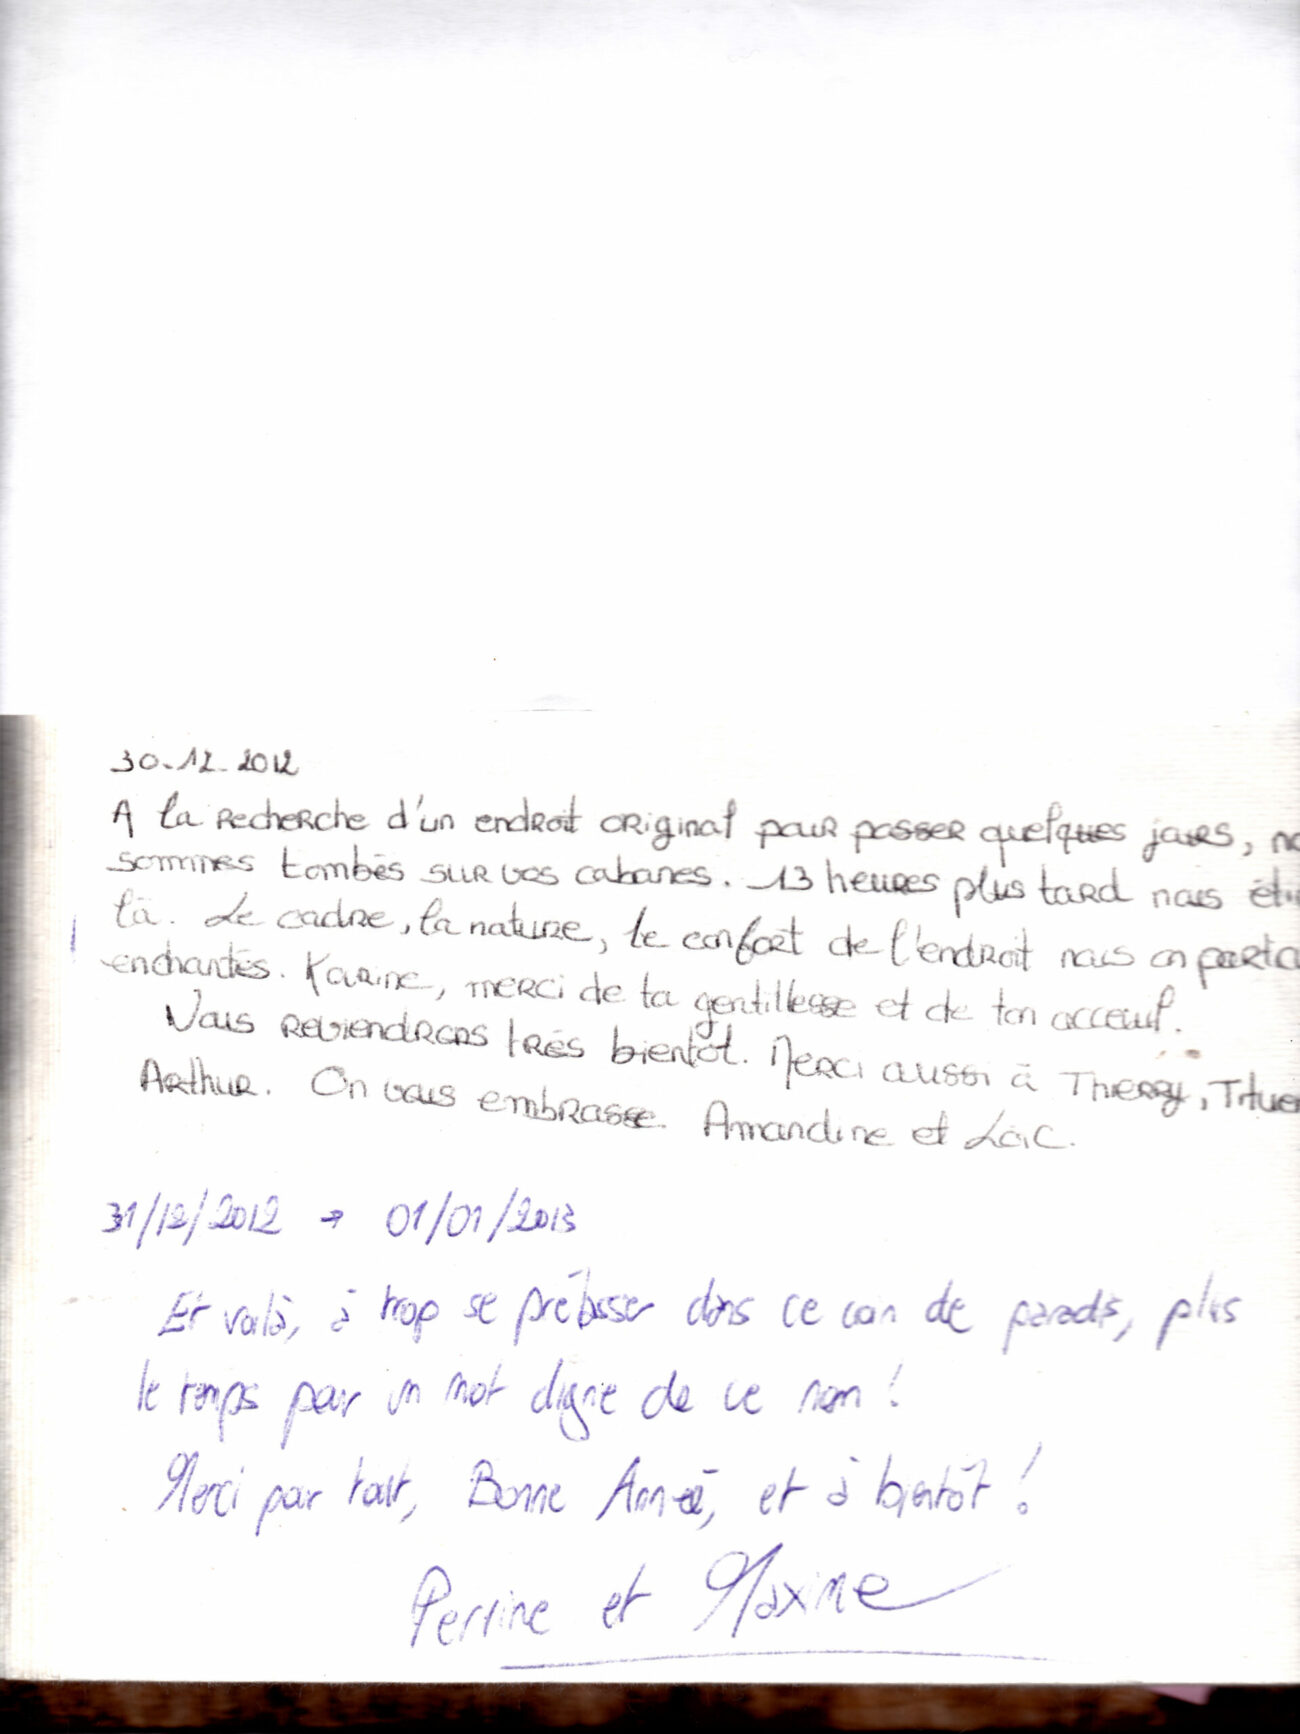 30-12-2012
A la recherche d'un endroit original pour passer quelques jours,
sommes tombés sur vos cabanes. 13 heures plus tard nous
là. Le cadre, la nature, le confort de l'endroit nous
enchantés. Karine, merci de ta gentillesse et de ton acceuil.
Nous reviendrons très bientôt. Merci aussi à Thierry,
Arthur. On vous embrasse. Amandine et Loïc.
31/12/2012 → 01/01/2013
Et voilà, à trop se prélasser dans ce coin de paradis, plus
le temps pour un mot digne de ce nom !
Merci pour tout, Bonne Année, et à bientôt !
Perrine et Maxime